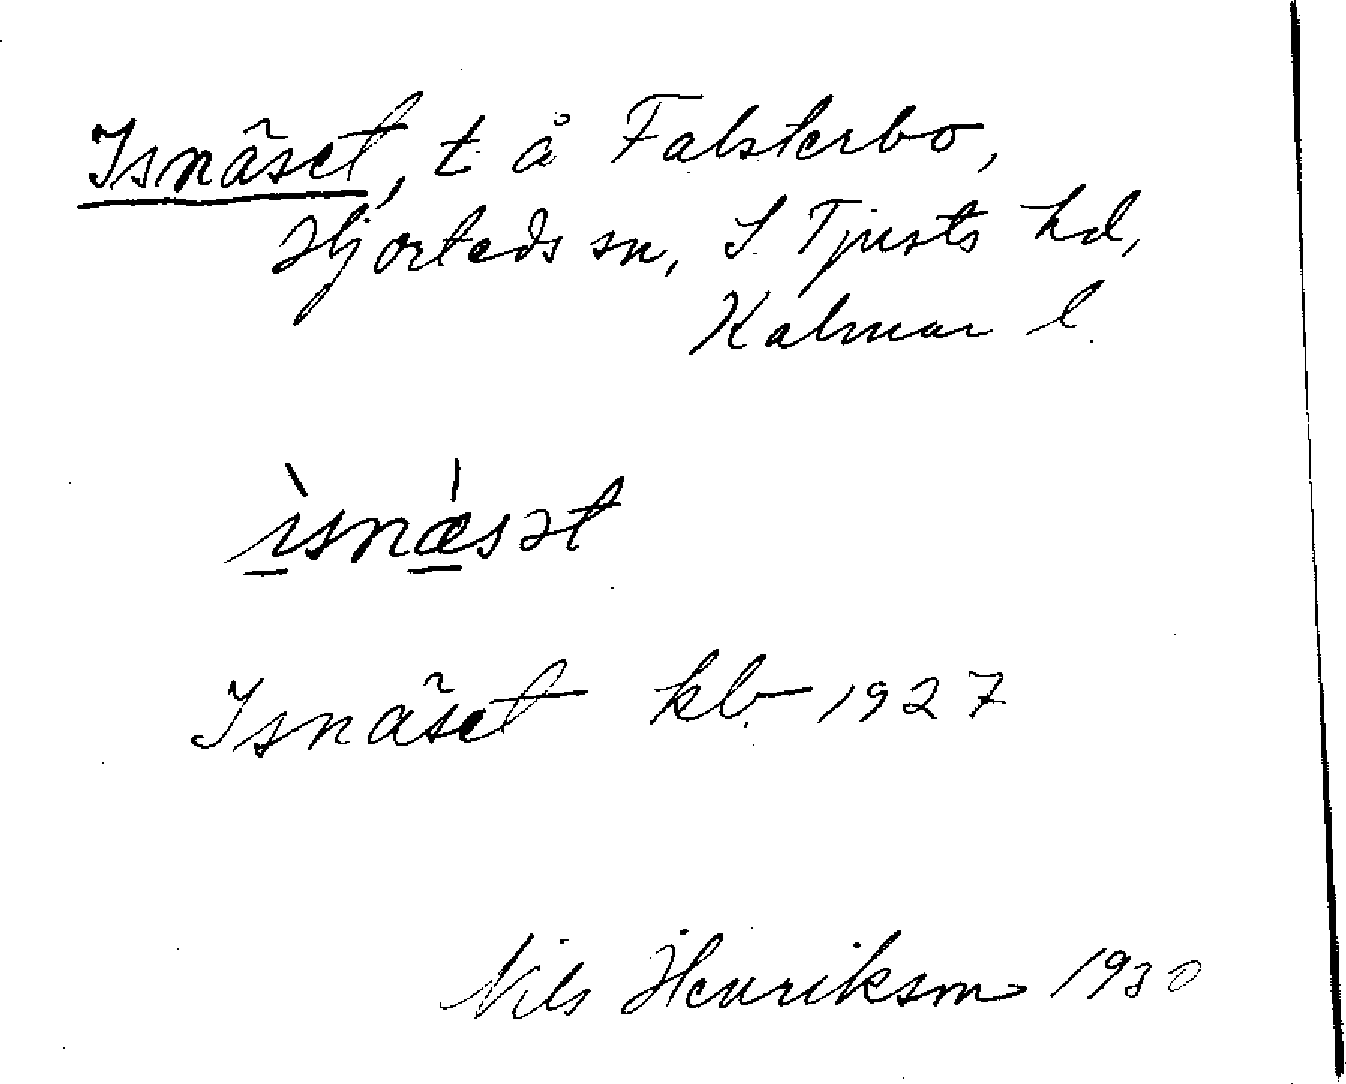 Isnäset, t å Falsterbo,
Hjorteds sn, S. Tjusts hd,
Kalmar l.
ìsnǽsət
Isnäset kb. 1927
Nils Henrikson 1930